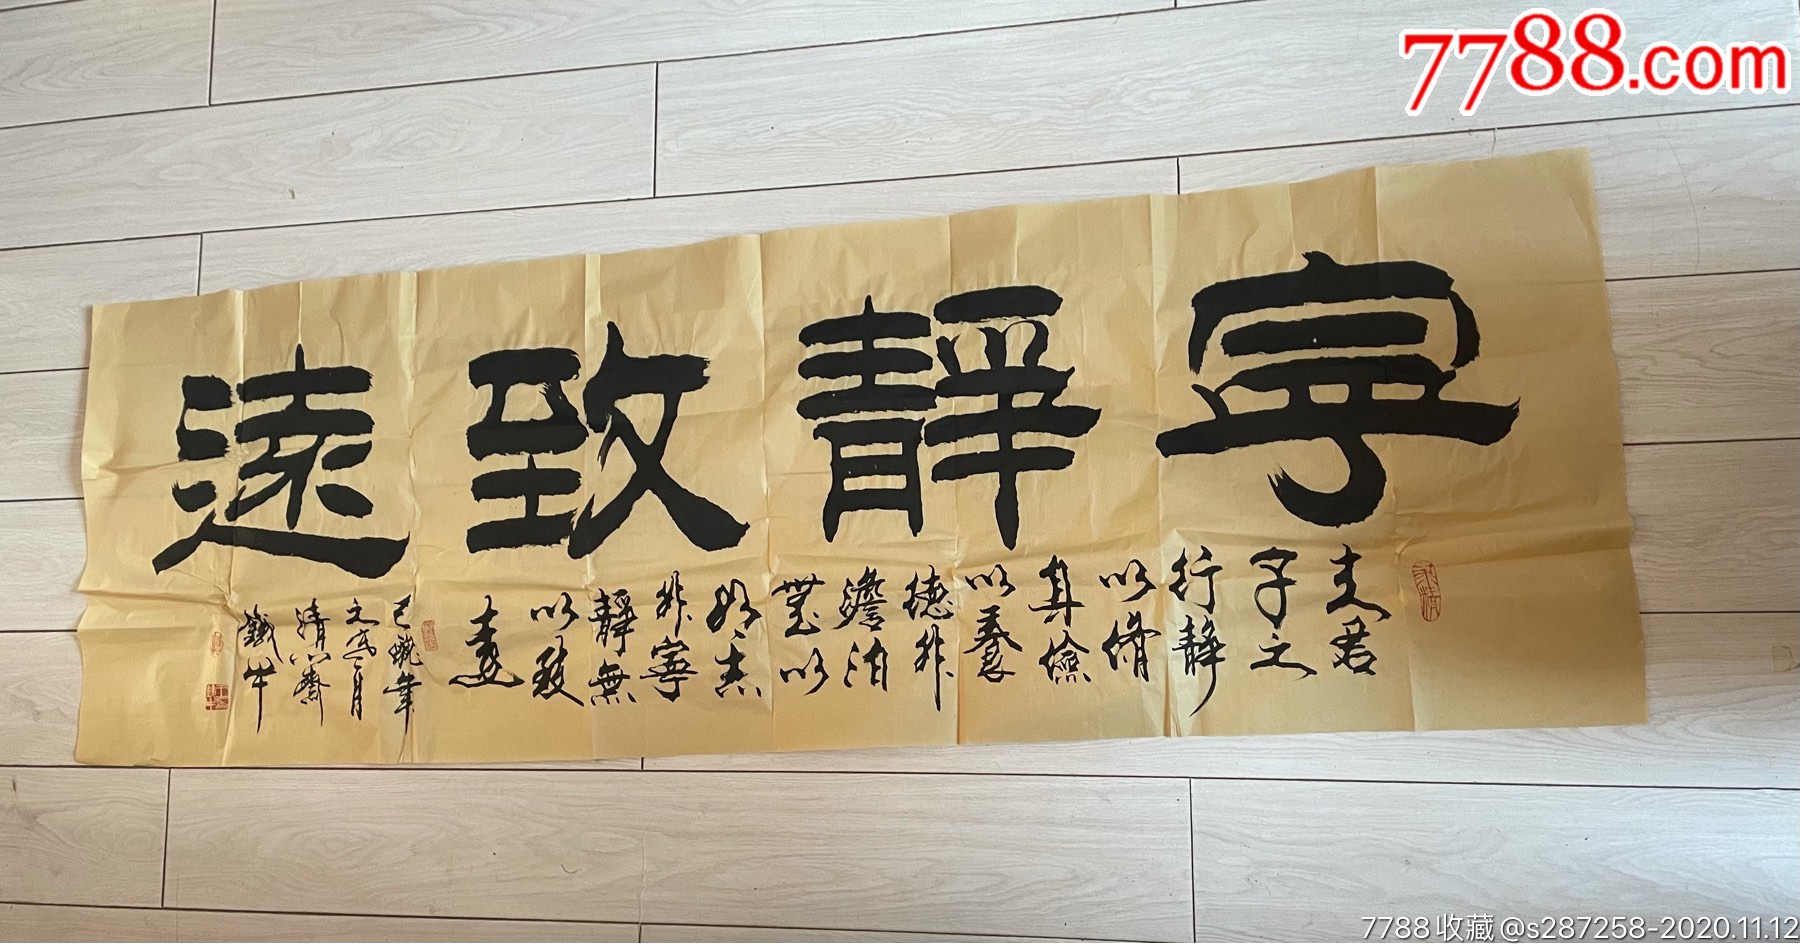 7788.com
寧靜致遠
夫君
子之
行靜
以脩
身儉
以養
德非
澹泊
無以
明志
非寧
靜無
以致
遠
年
月
清心齋
鐵牛
7788收藏@s287258-2020.11.12